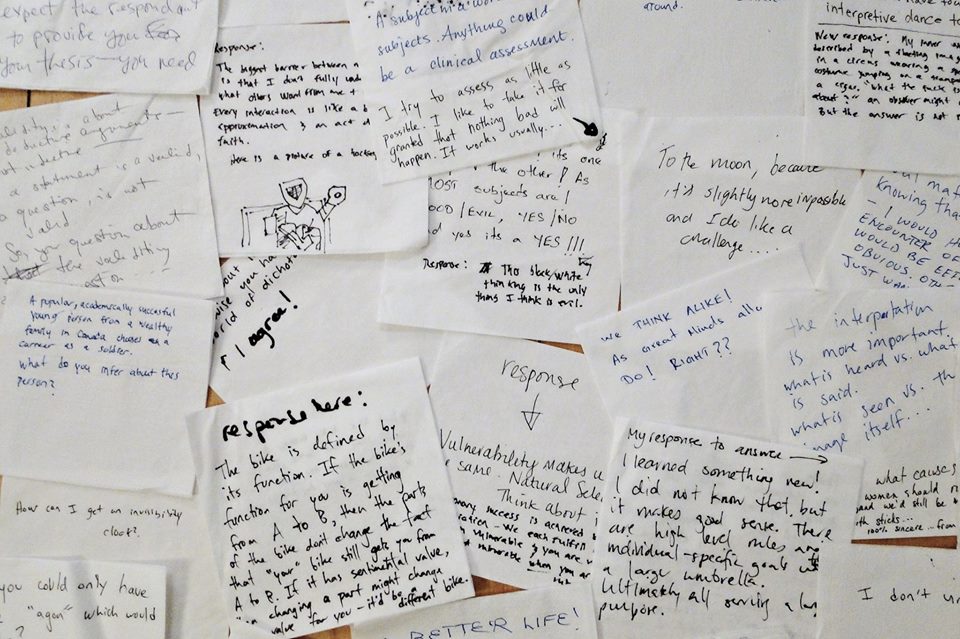 expect the respondent
to provide you
your thesis — you need
validity, is about
deductive arguments —
not inductive
a statement is a valid,
a question, is not
valid
So your question about
the validity
Response:
The biggest barrier between
is that I don't fully
what others want from me
Every interaction is like a
approximation & an act of
faith.
Here is a picture of a
A subject in a
subjects. Anything could
be a clinical assessment.
I try to assess as little as
possible. I like to take it for
granted that nothing bad will
happen. It works usually...
its one
the other! As
MOST subjects are!
GOOD/EVIL, YES/NO
and yes its a YES!!!
Response: The black/white
thinking is the only
thing I think is evil.
around.
To the moon, because
it's slightly more impossible
and I do like a
challenge....
interpretive dance to
New response: My inner
described by a floating
in a circus wearing a
costume jumping on a
a cigar. "What the fuck is
about?" an observer might
But the answer is not
knowing that
- I WOULD
ENCOUNTER OF
WOULD BE
OBVIOUS. OTH-
JUST
A popular, academically successful
young person from a wealthy
family in Canada chooses a
career as a soldier.
What do you infer about this
person?
about
you ha
world of dichot
I agree!
we THINK ALIKE!
As Great Minds all
DO! RIGHT??
the interpretation
is more important.
what is heard vs. what
is said.
what is seen vs. th
image itself....
response here:
The bike is defined by
its function. If the bike's
function for you is getting
from A to B, then the parts
of the bike don't change the fact
that "your" bike still gets you from
A to B. If it has sentimental value,
changing a part might change
value for you – it'd be a different bike.
response
Vulnerability makes u
same. Natural Sele
Think about i
success is achieved
We each
vulnerable & you are
vulnerable when you ar
My response to answer →
I learned something new!
I did not know that, but
it makes good sense. There
are high level rules and
individual-specific goals
a large umbrella.
Ultimately all serving a
purpose.
what causes
women should
we'd still be
with sticks...
100% sincere... from
How can I get an invisibility
cloak?
you could only have
"again" which would
?
BETTER LIFE!
I don't un